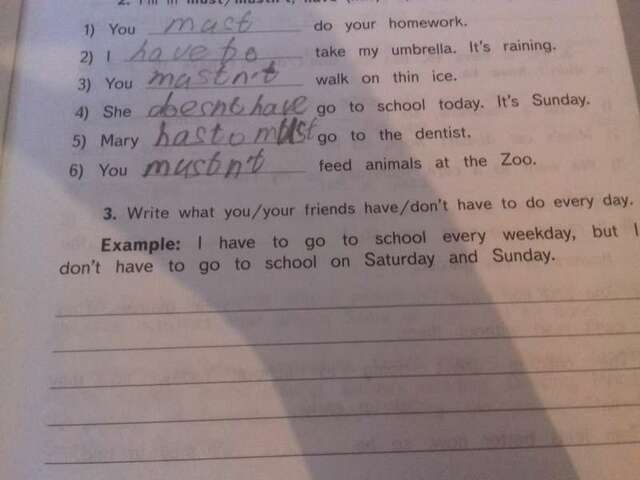 2. Fill in must/mustn't, have
1) You must do your homework.
2) I have to take my umbrella. It's raining.
3) You mustn't walk on thin ice.
4) She doesnt have go to school today. It's Sunday.
5) Mary has to must go to the dentist.
6) You mustn't feed animals at the Zoo.
3. Write what you/your friends have/don't have to do every day.
Example: I have to go to school every weekday, but I
don't have to go to school on Saturday and Sunday.